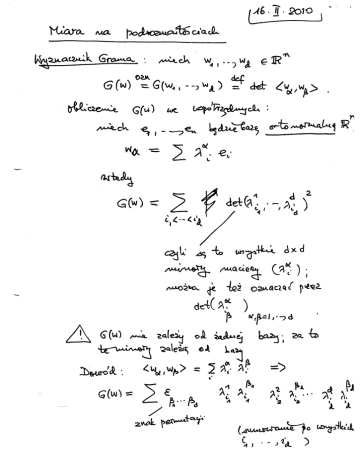 16. II. 2010
Miara na podrozmaitościach
Wyznacznik Grama : niech w₁, .., w_d ∈ ℝⁿ
G(w) ozn= G(w₁, .., w_d) def= det <w_α, w_β> .
obliczenie G(w) we współrzędnych :
niech e₁, .., e_n będzie bazą ortonormalną ℝⁿ
w_α = ∑ λ^α_i e_i
wtedy
G(w) = ∑_{i₁<..<i_d} det(λ¹_{i₁}, .., λ^d_{i_d})²
czyli są to wszystkie d×d
minory macierzy (λ^α_i) ;
można je też oznaczać przez
det(λ^α_{i_β})_{α,β=1,..,d}
⚠ G(w) nie zależy od żadnej bazy ; za to
te minory zależą od bazy
Dowód : <w_α, w_β> = ∑_i λ^α_i λ^β_i =>
G(w) = ∑ ε_{β₁..β_d} λ¹_{i₁} λ^{β₁}_{i₁} λ²_{i₂} λ^{β₂}_{i₂} .. λ^d_{i_d} λ^{β_d}_{i_d}
znak permutacji
(sumowanie po wszystkich
i₁, .., i_d )